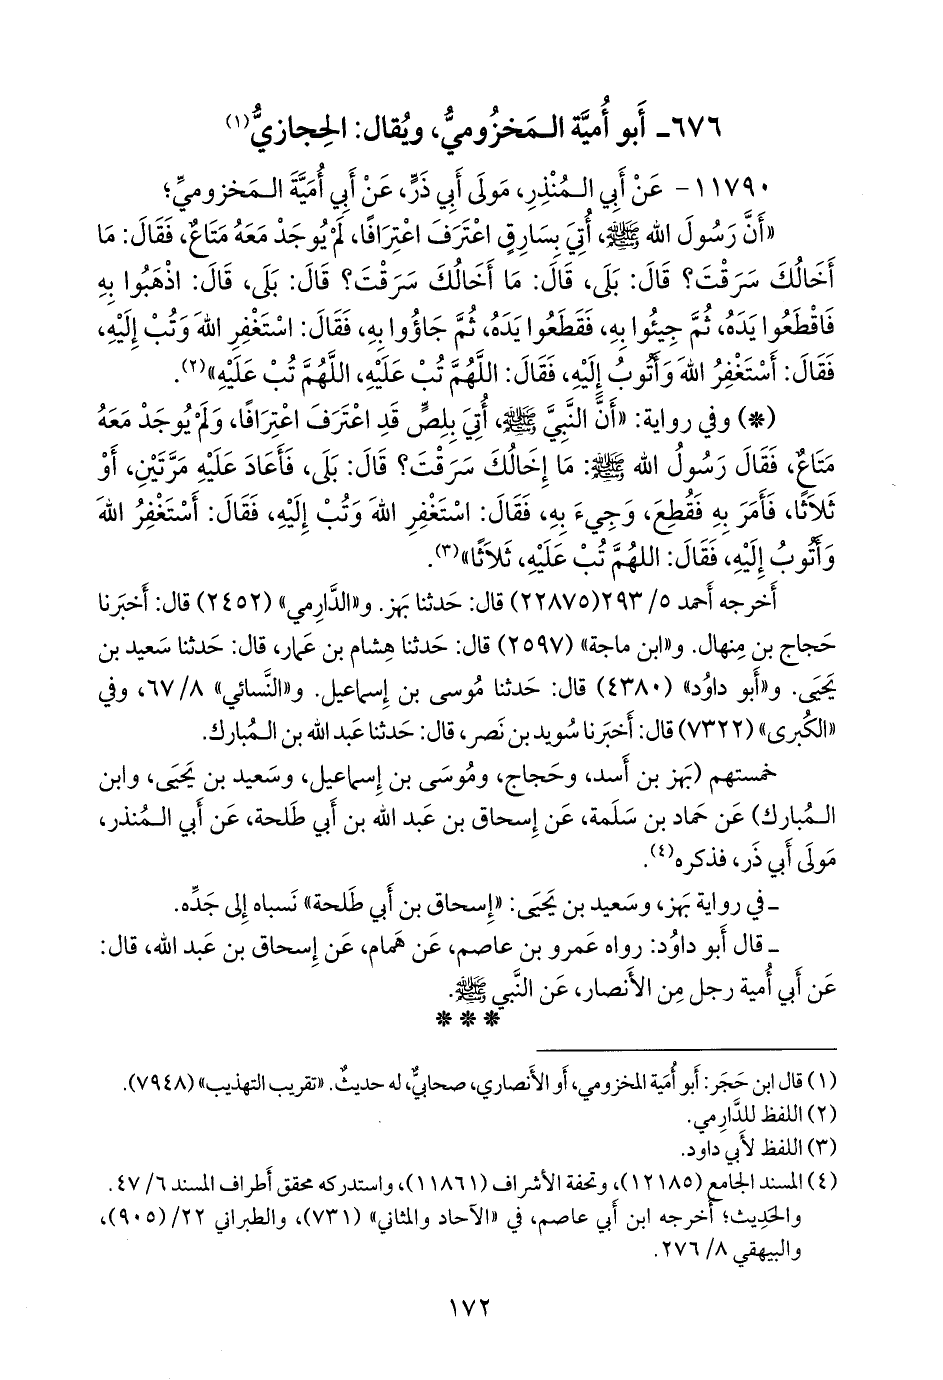 ٦٧٦ـ أَبو أُميَّة الـمَخزُوميُّ، ويُقال: الحِجازيُّ(١)
١١٧٩٠- عَنْ أَبِي الـمُنْذِرِ، مَولَى أَبِي ذَرٍّ، عَنْ أَبِي أُمَيَّةَ الـمَخزوميِّ؛
«أَنَّ رَسُولَ الله ﷺ، أُتِيَ بِسَارِقٍ اعْتَرَفَ اعْتِرَافًا، لَمْ يُوجَدْ مَعَهُ مَتَاعٌ، فَقَالَ: مَا
أَخَالُكَ سَرَقْتَ؟ قَالَ: بَلَى، قَالَ: مَا أَخَالُكَ سَرَقْتَ؟ قَالَ: بَلَى، قَالَ: اذْهَبُوا بِهِ
فَاقْطَعُوا يَدَهُ، ثُمَّ جِيئُوا بِهِ، فَقَطَعُوا يَدَهُ، ثُمَّ جَاؤُوا بِهِ، فَقَالَ: اسْتَغْفِرِ اللهَ وَتُبْ إِلَيْهِ،
فَقَالَ: أَسْتَغْفِرُ اللهَ وَأَتُوبُ إِلَيْهِ، فَقَالَ: اللَّهُمَّ تُبْ عَلَيْهِ، اللَّهُمَّ تُبْ عَلَيْهِ»(٢).
(*) وفي رواية: «أَنَّ النَّبِيَّ ﷺ، أُتِيَ بِلِصٍّ قَدِ اعْتَرَفَ اعْتِرَافًا، وَلَمْ يُوجَدْ مَعَهُ
مَتَاعٌ، فَقَالَ رَسُولُ الله ﷺ: مَا إِخَالُكَ سَرَقْتَ؟ قَالَ: بَلَى، فَأَعَادَ عَلَيْهِ مَرَّتَيْنِ، أَوْ
ثَلَاثًا، فَأَمَرَ بِهِ فَقُطِعَ، وَجِيءَ بِهِ، فَقَالَ: اسْتَغْفِرِ اللهَ وَتُبْ إِلَيْهِ، فَقَالَ: أَسْتَغْفِرُ اللهَ
وَأَتُوبُ إِلَيْهِ، فَقَالَ: اللهُمَّ تُبْ عَلَيْهِ، ثَلَاثًا»(٣).
أَخرجه أَحمد ٥/ ٢٩٣(٢٢٨٧٥) قال: حَدثنا بَهز. و«الدَّارِمي» (٢٤٥٢) قال: أَخبَرنا
حَجاج بن مِنهال. و«ابن ماجة» (٢٥٩٧) قال: حَدثنا هِشام بن عَمار، قال: حَدثنا سَعيد بن
يَحيَى. و«أَبو داوُد» (٤٣٨٠) قال: حَدثنا مُوسى بن إِسماعيل. و«النَّسائي» ٨/ ٦٧، وفي
«الكُبرى» (٧٣٢٢) قال: أَخبَرنا سُويد بن نَصر، قال: حَدثنا عَبد الله بن الـمُبارك.
خمستهم (بَهز بن أَسد، وحَجاج، ومُوسَى بن إِسماعيل، وسَعيد بن يَحيَى، وابن
الـمُبارك) عَن حَماد بن سَلَمة، عَن إِسحاق بن عَبد الله بن أَبي طَلحة، عَن أَبي الـمُنذر،
مَولى أَبي ذَر، فذكره(٤).
ـ في رواية بَهز، وسَعيد بن يَحيَى: «إِسحاق بن أَبي طَلحة» نَسباه إِلى جَدِّه.
ـ قال أَبو داوُد: رواه عَمرو بن عاصم، عَن هَمام، عَن إِسحاق بن عَبد الله، قال:
عَن أَبي أُمية رجل مِن الأَنصار، عَن النَّبي ﷺ.
* * *
(١) قال ابن حَجَر: أَبو أُمَية المخزومي، أَو الأَنصاري، صحابيٌّ، له حديثٌ. «تقريب التهذيب» (٧٩٤٨).
(٢) اللفظ للدَّارِمي.
(٣) اللفظ لأَبي داود.
(٤) المسند الجامع (١٢١٨٥)، وتحفة الأشراف (١١٨٦١)، واستدركه محقق أَطراف المسند ٦/ ٤٧.
والحَدِيث؛ أَخرجه ابن أَبي عاصم، في «الآحاد والمثاني» (٧٣١)، والطبراني ٢٢/ (٩٠٥)،
والبيهقي ٨/ ٢٧٦.
١٧٢